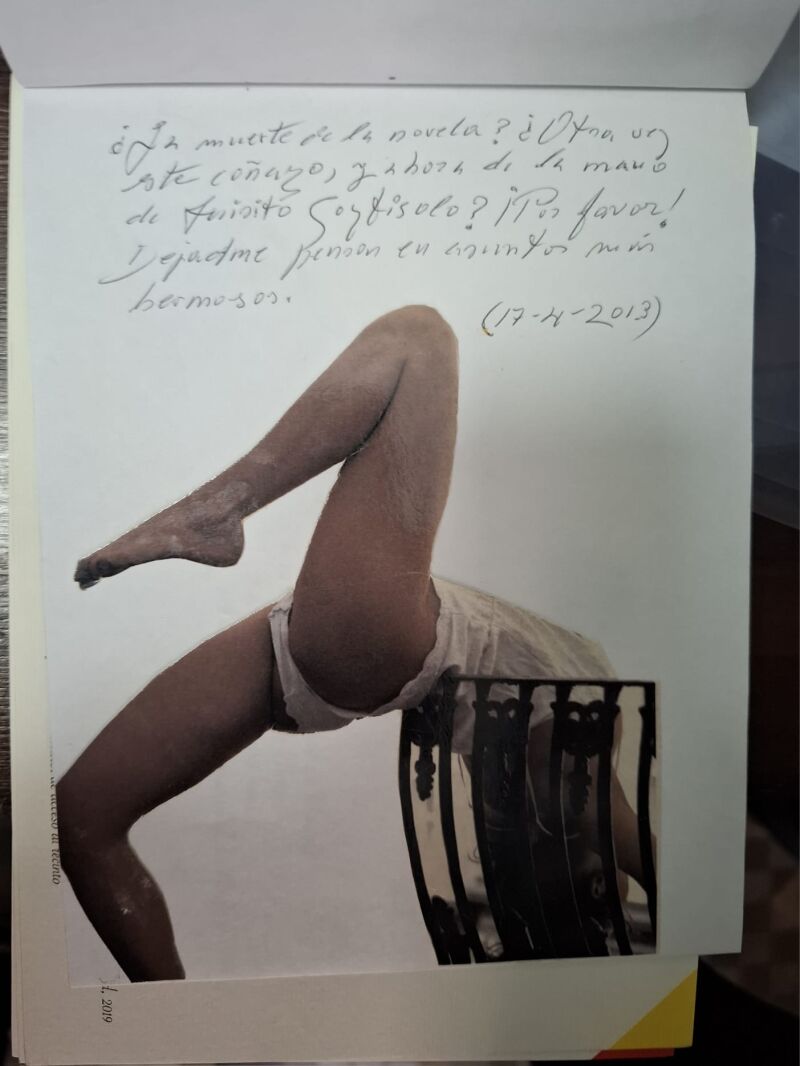 ¿La muerte de la novela? ¿Otra vez
este coñazo, y ahora de la mano
de Luisito Goytisolo? ¡Por favor!
Dejadme pensar en asuntos más
hermosos.
(17-4-2013)
de acceso al recinto
2019